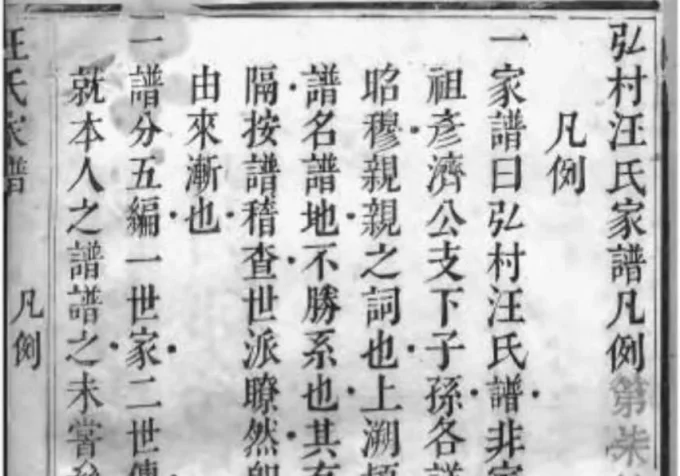 弘村汪氏家譜凡例第
凡例
一家譜曰弘村汪氏譜非
祖彥濟公支下子孫各
昭穆親親之詞也上溯
譜名譜地不勝系也其
隔按譜稽查世派瞭然
由來漸也
一譜分五編一世家二世傳
就本人之譜譜之未嘗
汪氏家譜
凡例